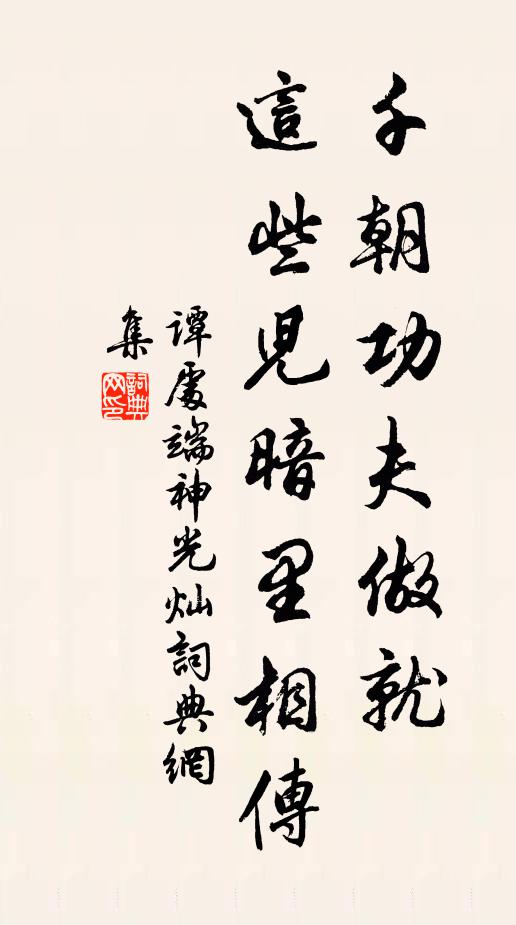 千朝功夫做就
這些児暗里相傳
譚處端神光灿詞典網
集
詞典
网印